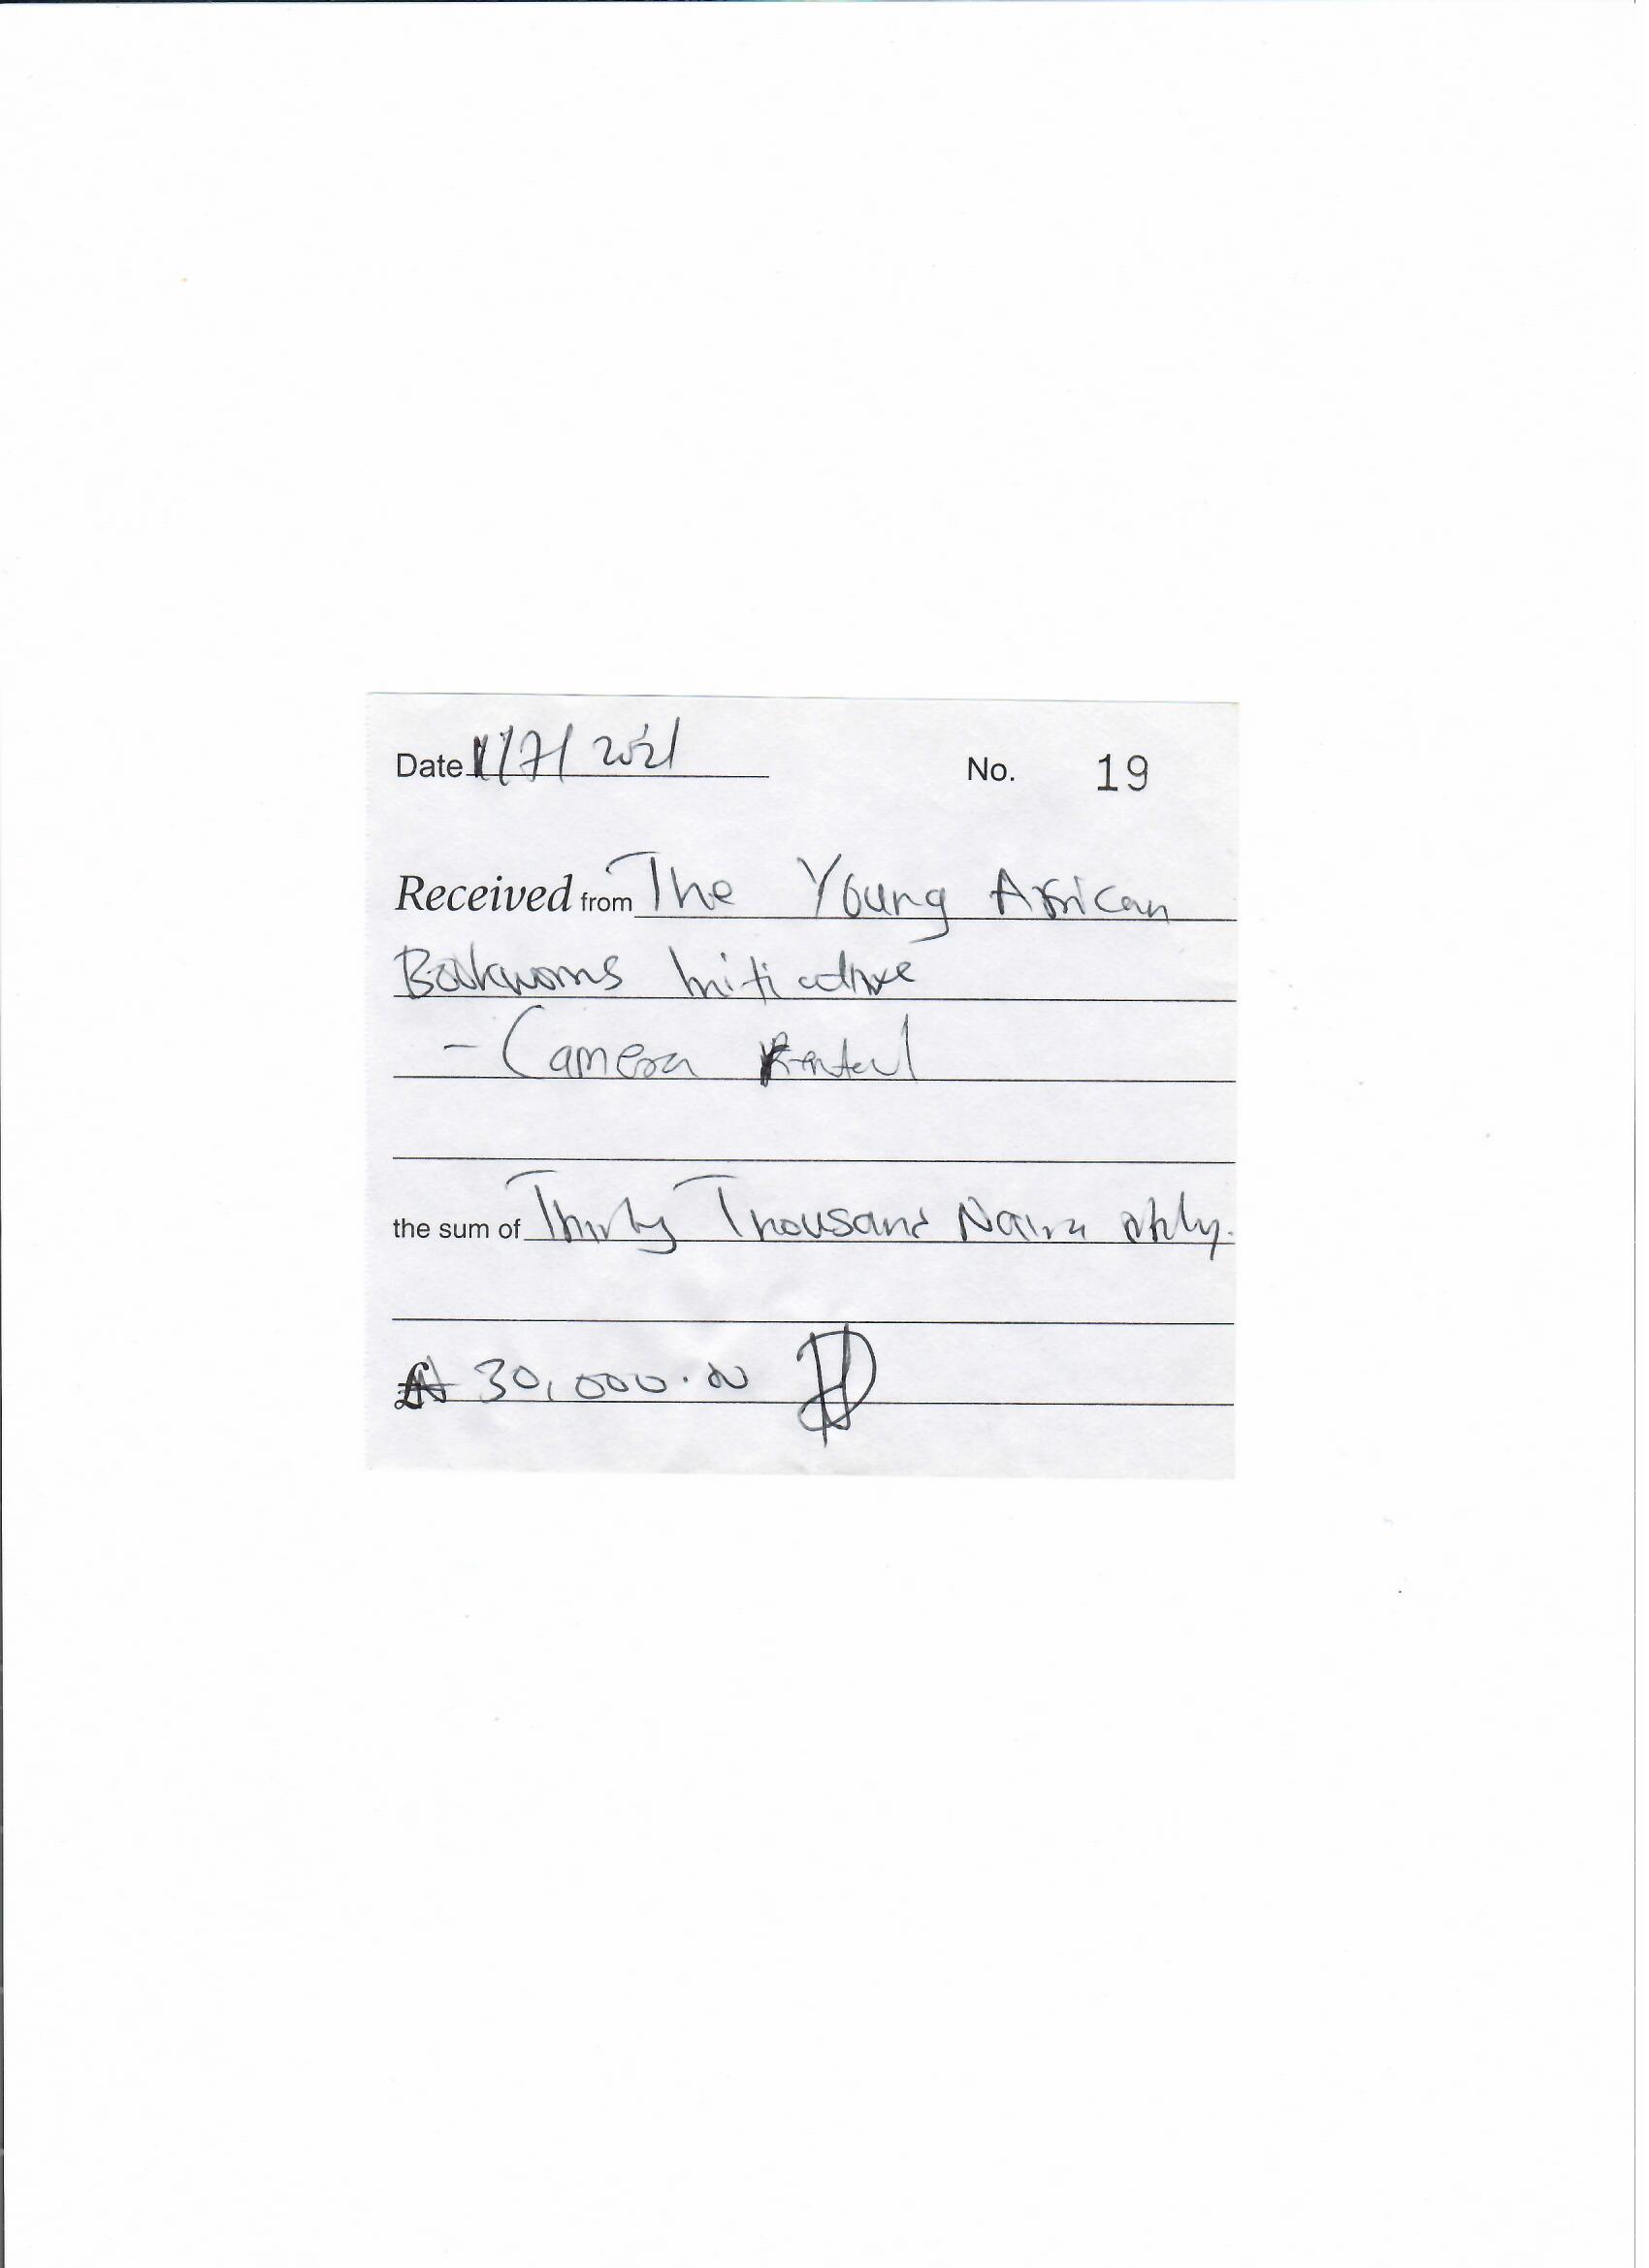 Date 1/7/2021 No. 19
Received from The Young African
Bookworms Initiative
- Camera Rental
the sum of Thirty Thousand Naira only.
₦ 30,000.00